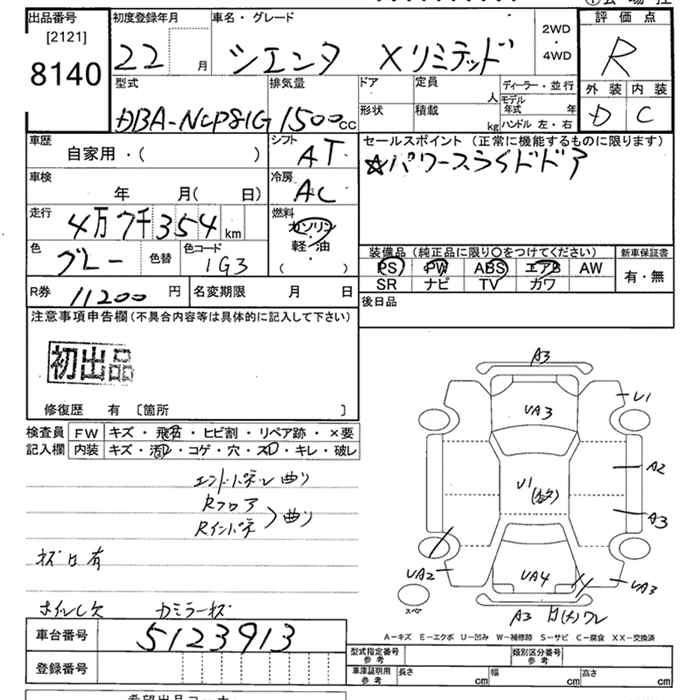 出品番号
[2121]
8140
初度登録年月
22 月
車名・グレード
シエンタ Xリミテッド
2WD
・
4WD
評価点
R
外装 内装
D C
型式
DBA-NCP81G
排気量
1500cc
ドア
形状
定員 人
積載 kg
ディーラー・並行
モデル年式 年
ハンドル 左・右
車歴
自家用・( )
シフト
AT
セールスポイント(正常に機能するものに限ります)
☆パワースライドドア
車検
年 月( 日)
冷房
AC
走行
4万7千354 km
燃料
ガソリン
軽・油
( )
色
グレー
色替
色コード
1G3
装備品(純正品に限り○をつけてください)
PS PW ABS エアB AW
SR ナビ TV カワ
新車保証書
有・無
R券 11200 円
名変期限 月 日
後日品
注意事項申告欄(不具合内容等は具体的に記入して下さい)
初出品
修復歴 有 [箇所 ]
検査員
記入欄
FW キズ・飛石・ヒビ割・リペア跡・×要
内装 キズ・汚れ・コゲ・穴・スレ・キレ・破レ
エンドパネル曲り
Rフロア
Rインパネ
曲り
ネズレ有
ホイルし欠 カミラーキズ
A3
U1
UA3
A2
U1
A3
UA2
UA4
UA3
A3
ワレ
スペア
A-キズ E-エクボ U-凹み W-補修跡 S-サビ C-腐食 XX-交換済
車台番号 5123913
登録番号
型式指定番号
参考
類別区分番号
参考
車庫証明用
参考
長さ cm 幅 cm 高さ cm
希望出品コーナー